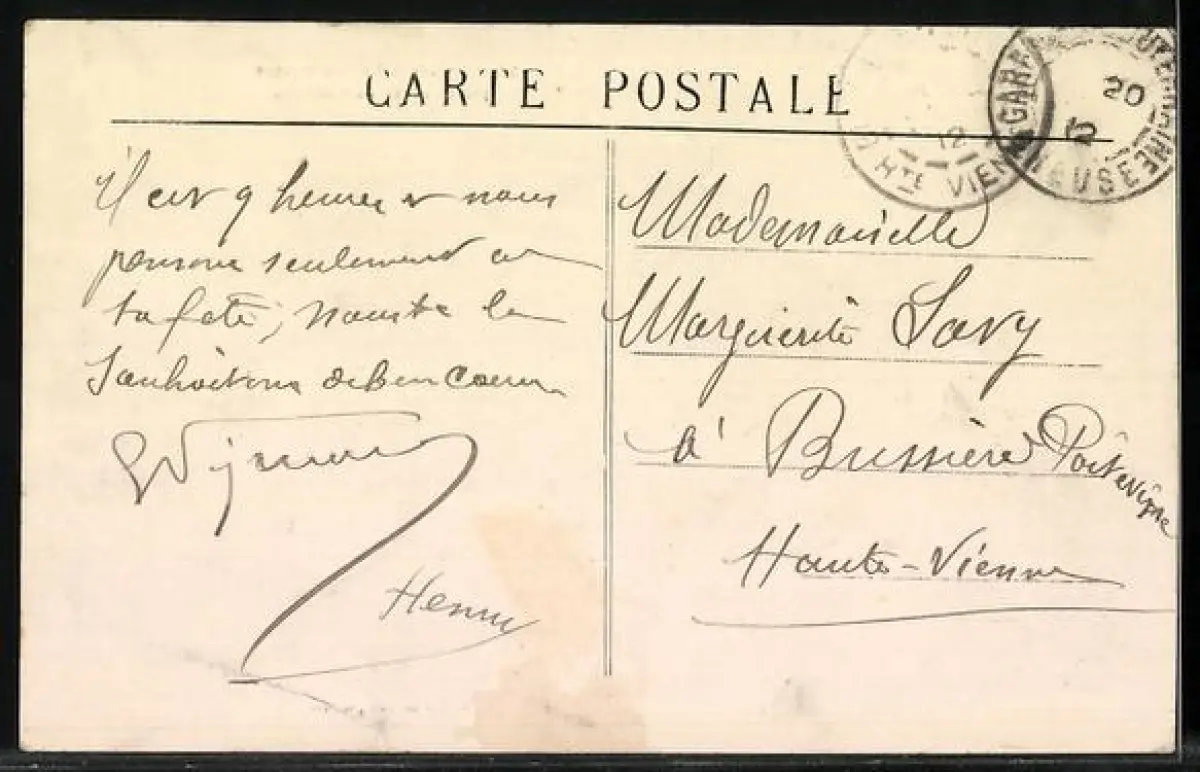 CARTE POSTALE
Il est 9 heures et nous
pensons seulement à
ta fête, nous te la
Souhaitons de bon Coeur
Henri
Mademoiselle
Marguerite Savy
à Bussière Poitevine
Haute-Vienne
HTE VIENNE
20
12
12
CREUSE